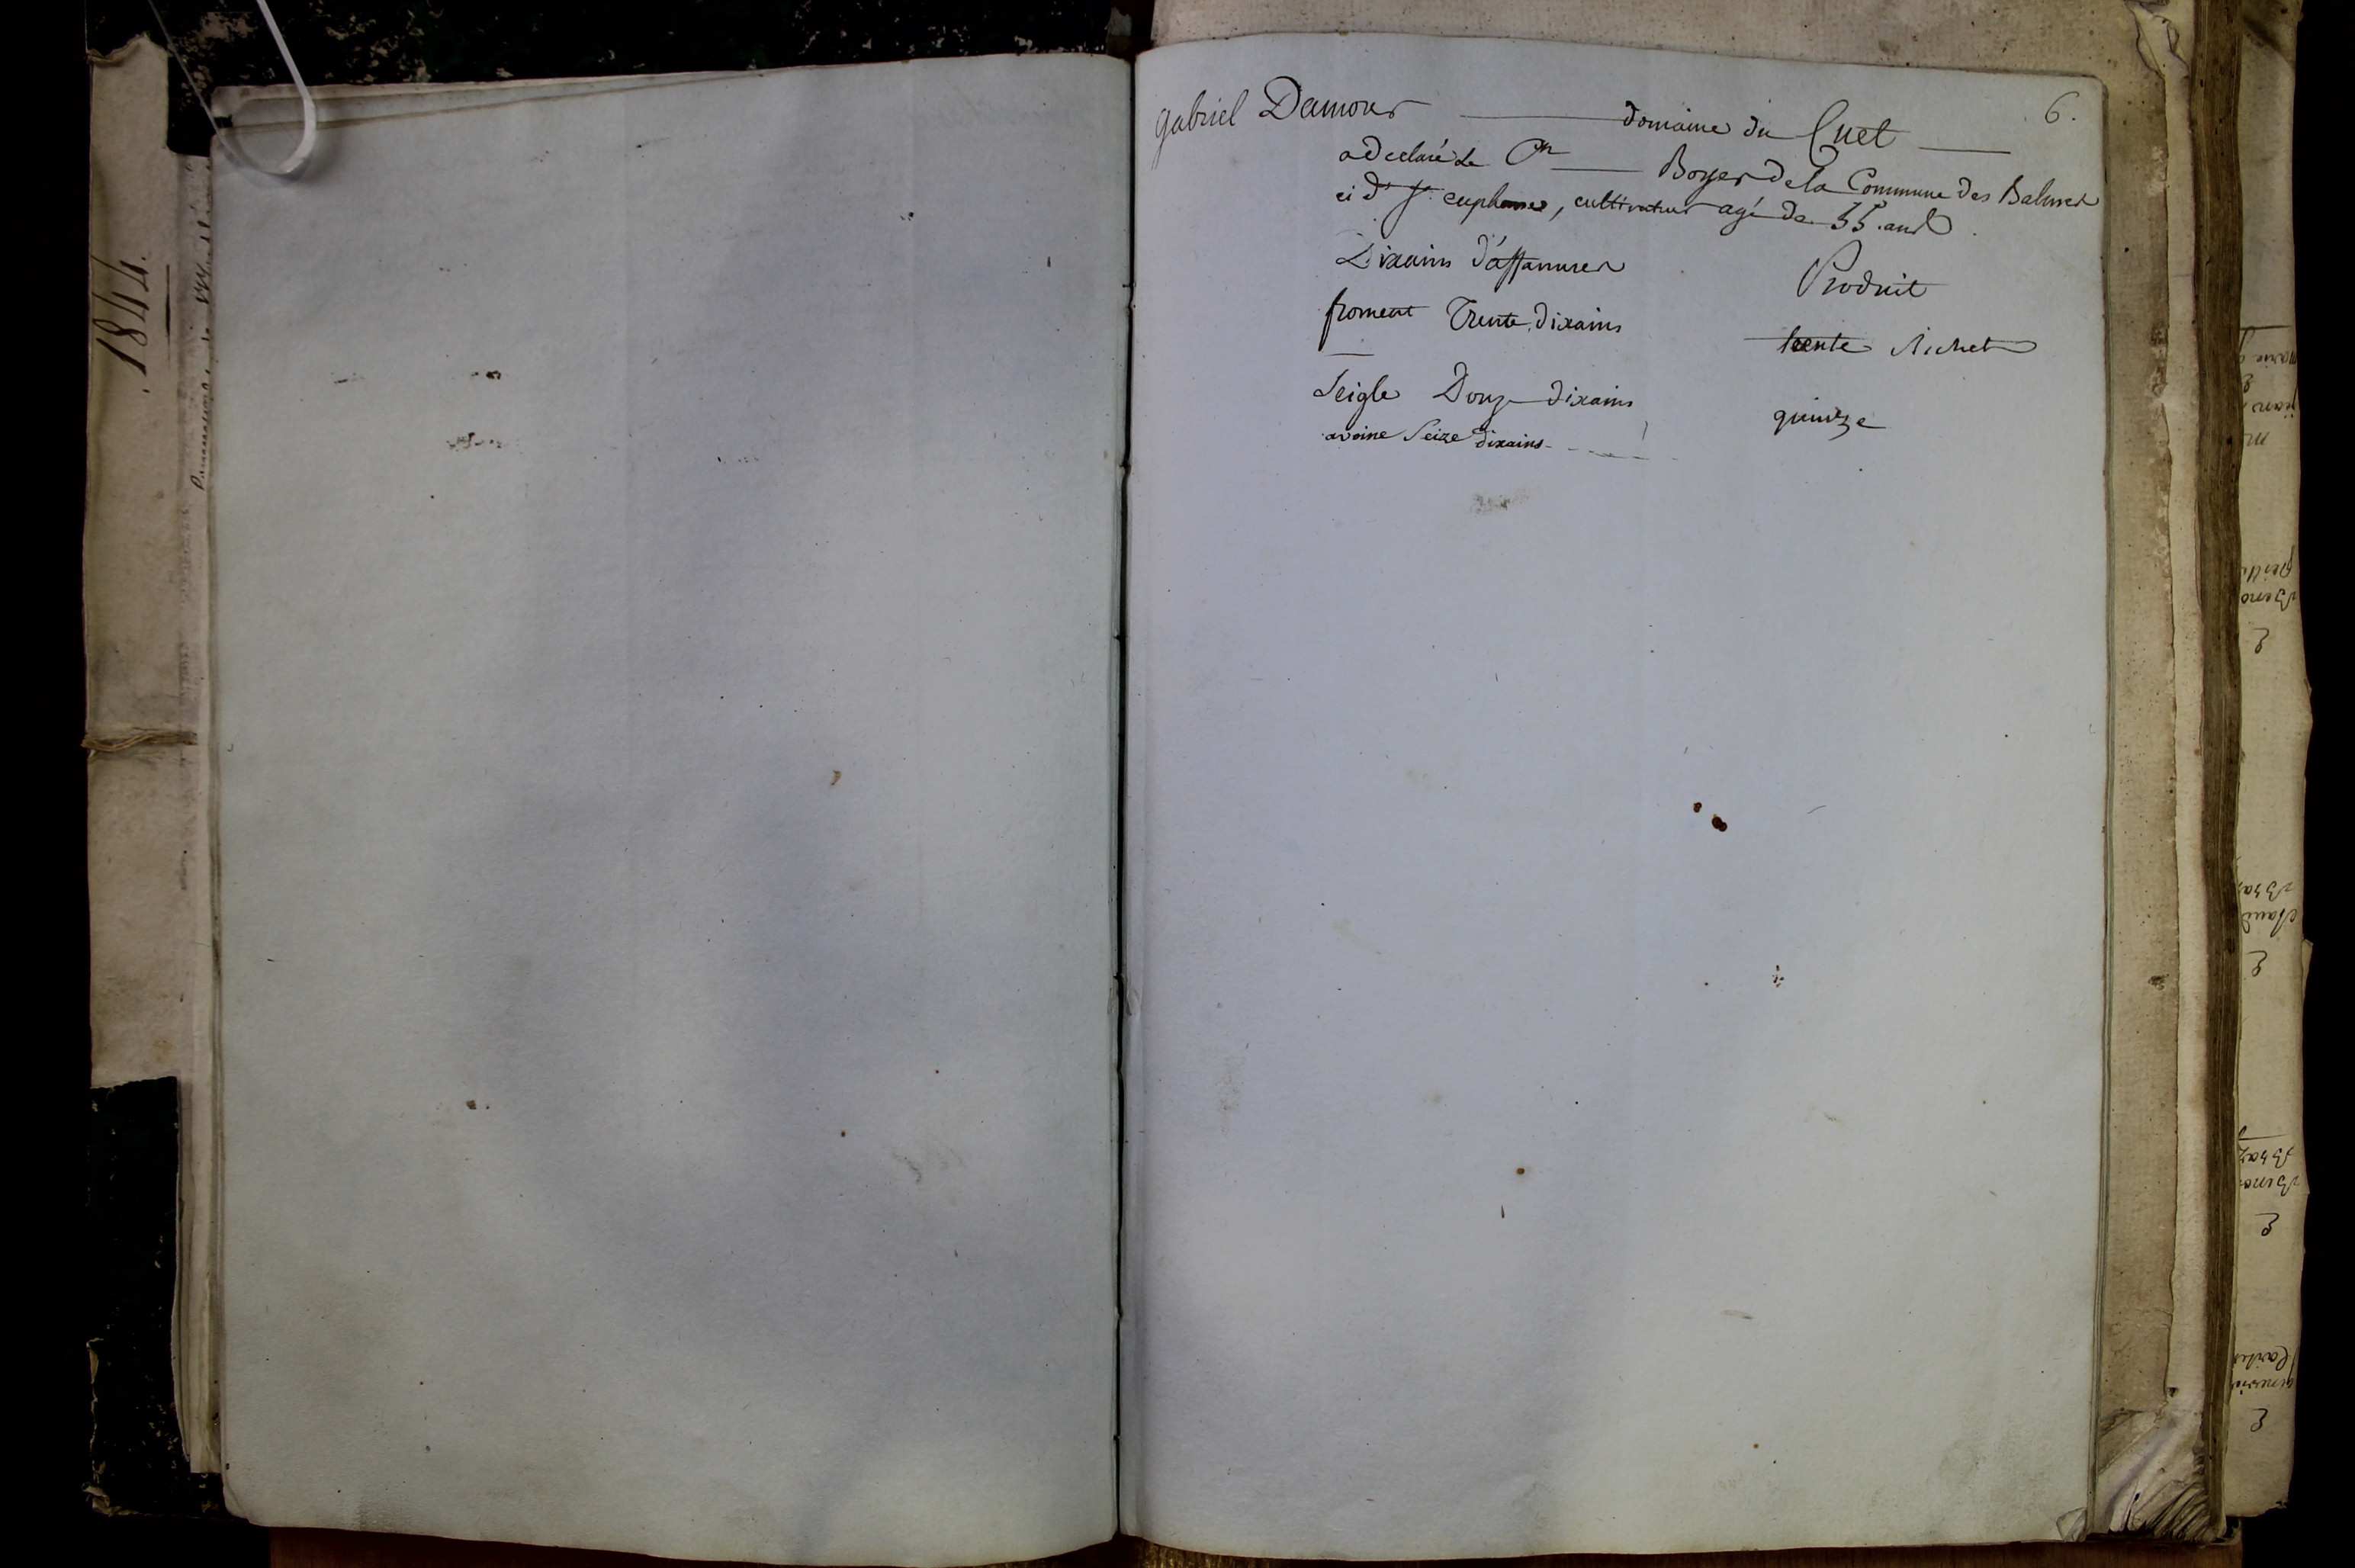 1844.
6.
gabriel Damour domaine du Cuet
a declaré le Cn Boyer de la Commune des Balmes
ci dt St euphemie, cultivateur agé de 55 ans
Dixains d'affanures Produit
froment Trente dixains trente bichets
Seigle Douze dixains quinze
avoine Seize dixains